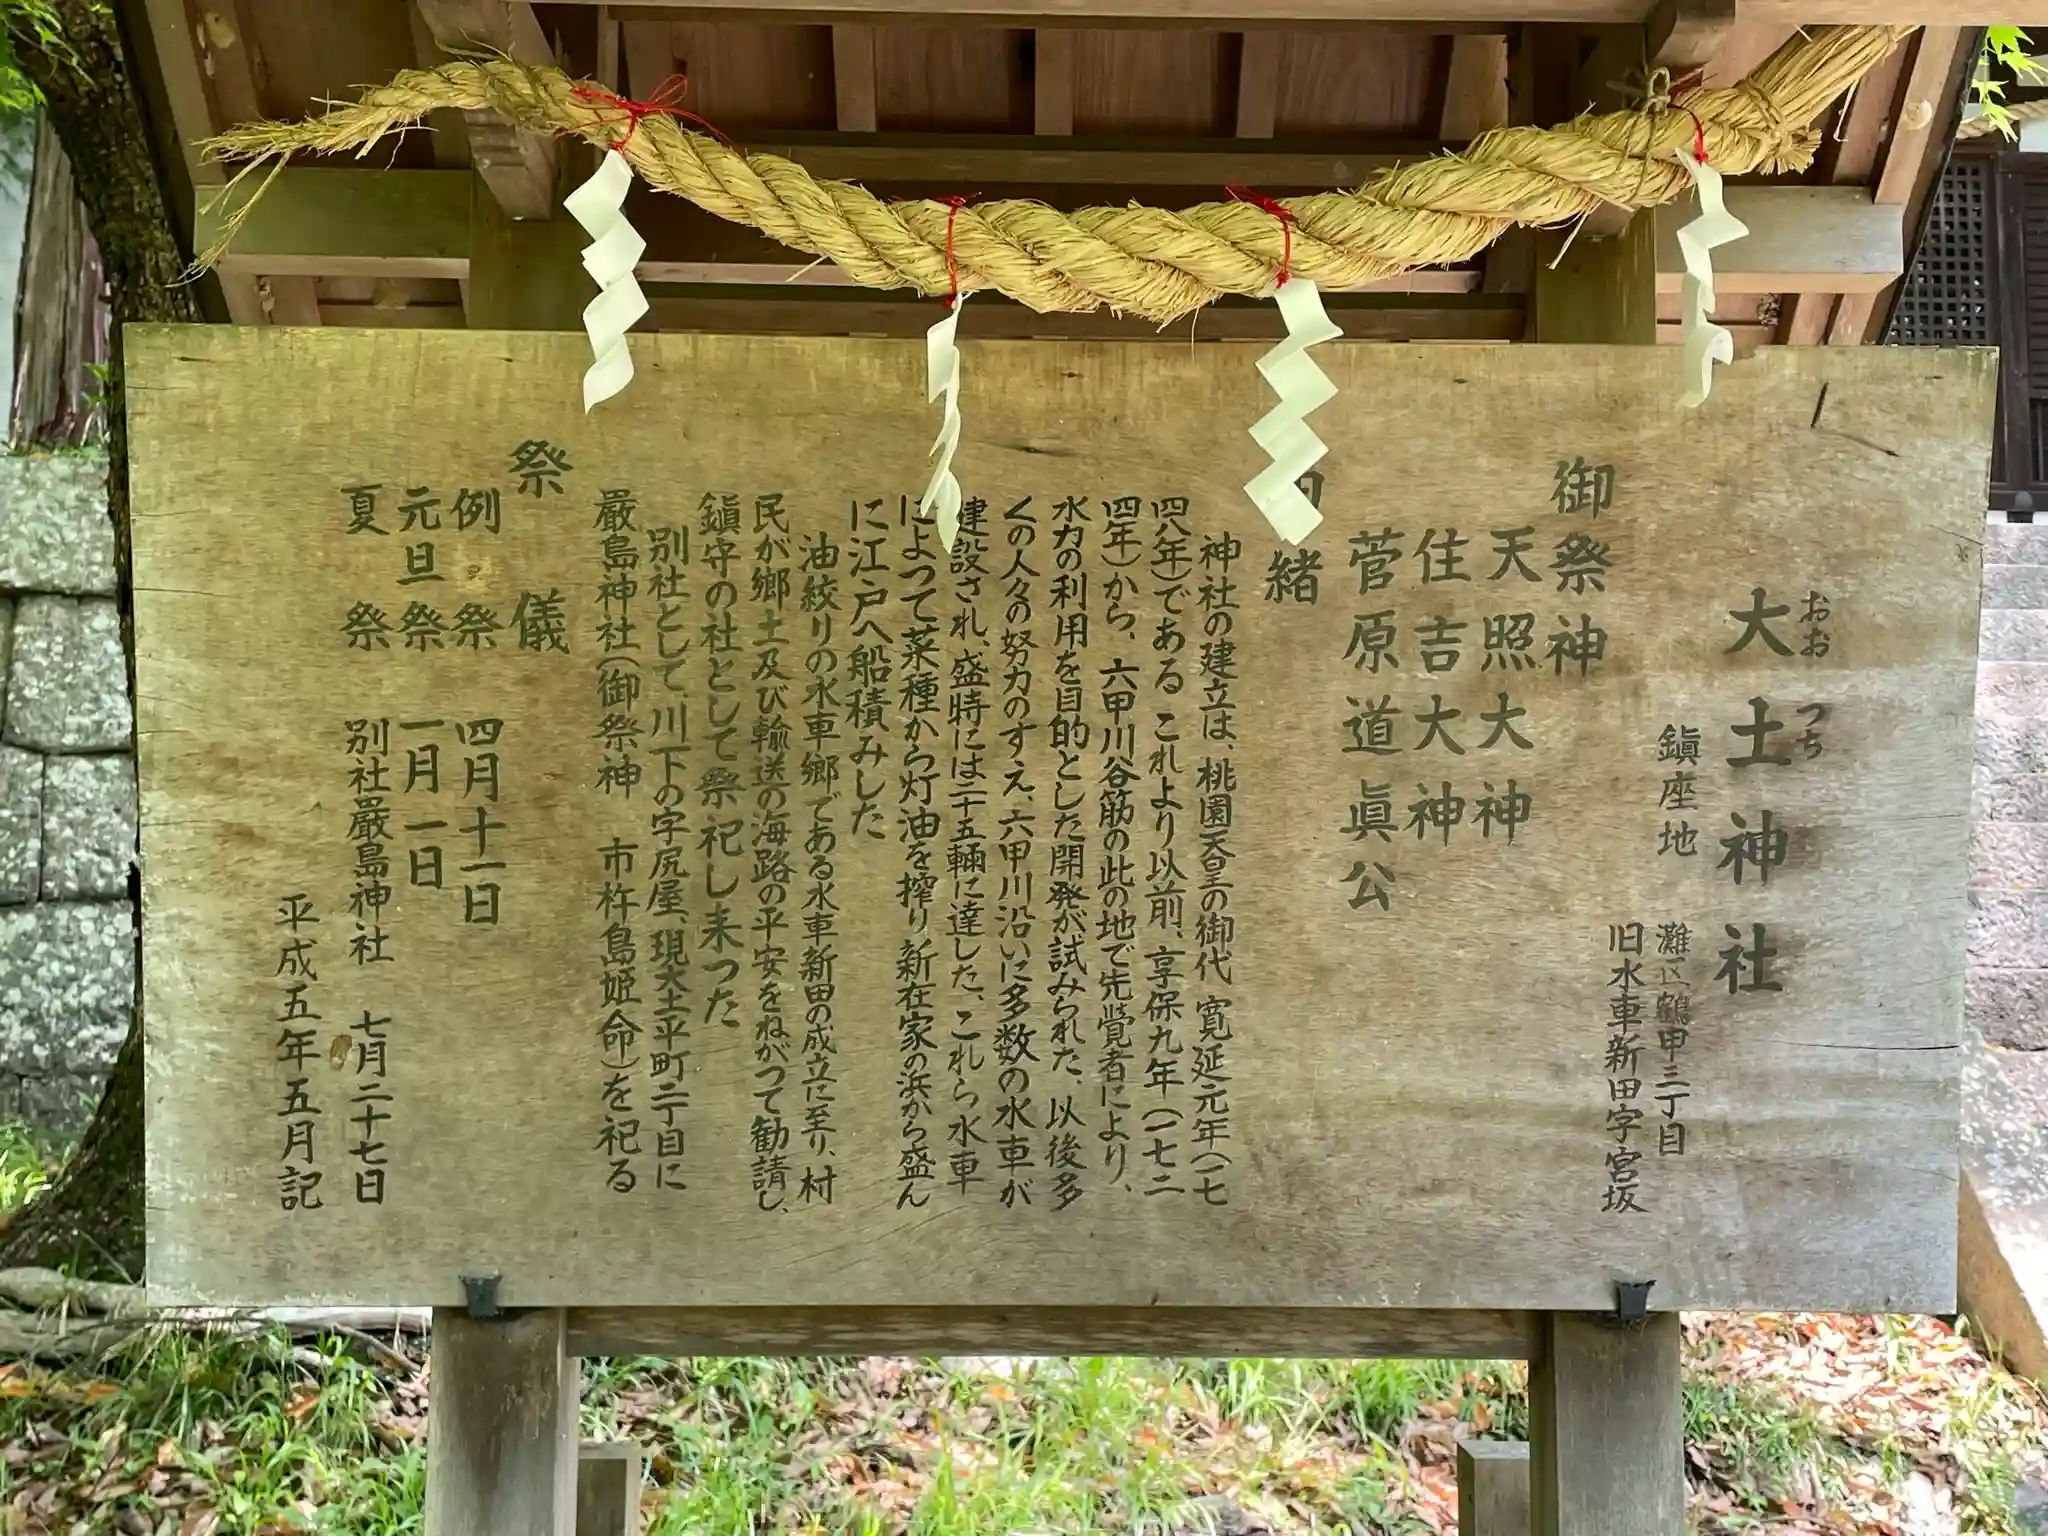 大土神社
おお つち
鎮座地 灘区鶴甲三丁目
旧水車新田字宮坂
御祭神
天照大神
住吉大神
菅原道眞公
緒
神社の建立は、桃園天皇の御代 寛延元年(一七
四八年)である これより以前、享保九年(一七二
四年)から、六甲川谷筋の此の地で先覺者により、
水力の利用を目的とした開発が試みられた、以後多
くの人々の努力のすえ、六甲川沿いに多数の水車が
建設され、盛時には二十五輛に達した、これら水車
によつて菜種から灯油を搾り新在家の浜から盛ん
に江戸へ船積みした
油絞りの水車郷である水車新田の成立に至り、村
民が郷土及び輸送の海路の平安をねがつて勧請し、
鎮守の社として祭祀し来つた
別社として、川下の字尻屋、現大土平町二丁目に
嚴島神社(御祭神 市杵島姫命)を祀る
祭儀
例祭 四月十一日
元旦祭 一月一日
夏祭 別社嚴島神社 七月二十七日
平成五年五月記